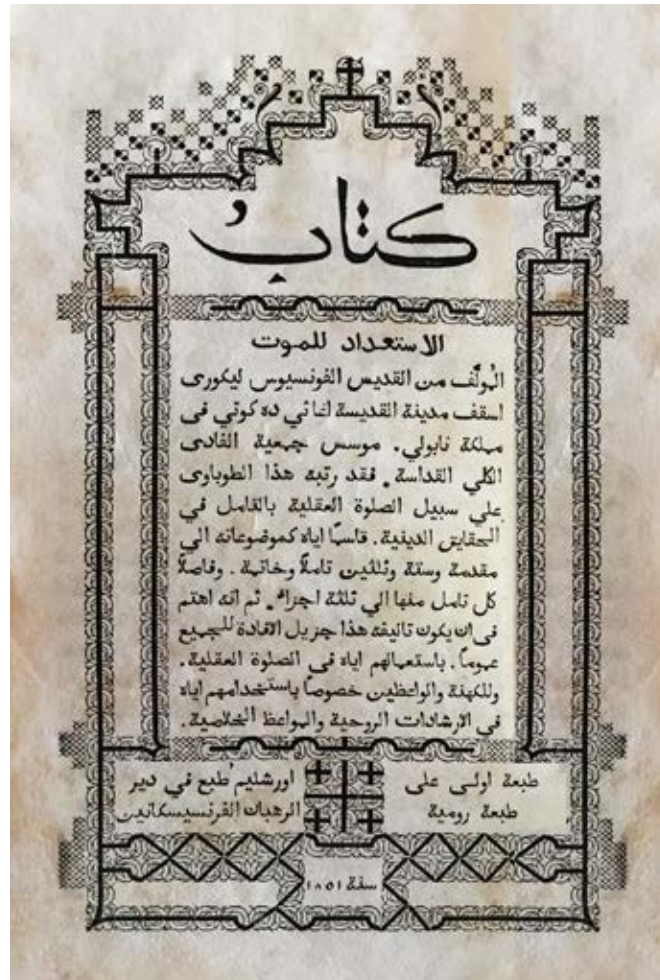 كتابُ
الاستعداد للموت
المُولَّف من القديس الفونسيوس ليكورى
اسقف مدينة القديسة اغاثي ده كوتي فى
مملكة نابولي. موسس جمعية الفادى
الكلي القداسة. فقد رتبه هذا الطوباوى
علي سبيل الصلوة العقلية بالتامل في
الحقايق الدينية. قاسمًا اياه كموضوعاته الي
مقدمة وستة وثلثين تاملاً وخاتمة. وفاصلاً
كل تامل منها الي ثلثة اجزاء. ثم انه اهتم
فى ان يكون تاليفه هذا جزيل الافادة للجميع
عموماً. باستعمالهم اياه فى الصلوة العقلية.
وللكهنة والواعظين خصوصاً باستخدامهم اياه
في الارشادات الروحية والمواعظ الخلاصية.
طبعة اولى على
طبعة رومية
اورشليم طبع في دير
الرهبان الفرنسيسكانين
سنة ١٨٥١